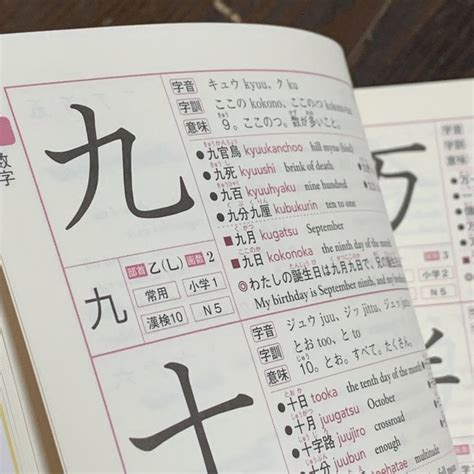 数字
九
字音 キュウ kyuu、ク ku
字訓 ここの kokono、ここのつ
意味 9。ここのつ。数が多いこと。
●九官鳥 kyuukanchoo hill myna (bird)
●九死 kyuushi brink of death
●九百 kyuuhyaku nine hundred
●九分九厘 kubukurin ten to one
■九月 kugatsu September
■九日 kokonoka the ninth day of the month
◎わたしの誕生日は九月九日で、兄の
My birthday is September ninth, and my
部首 乙(乚) 画数 2
九
常用 小学1
漢検10 N5
十
字音 ジュウ juu、ジッ jittu、ジュッ
字訓 とお too、と to
意味 10。とお。すべて。たくさん。
●十日 tooka the tenth day of the month
●十月 juugatsu October
●十字路 juujiro crossroad
●十分 juubun enough
multitude
万
3
小学2
N5